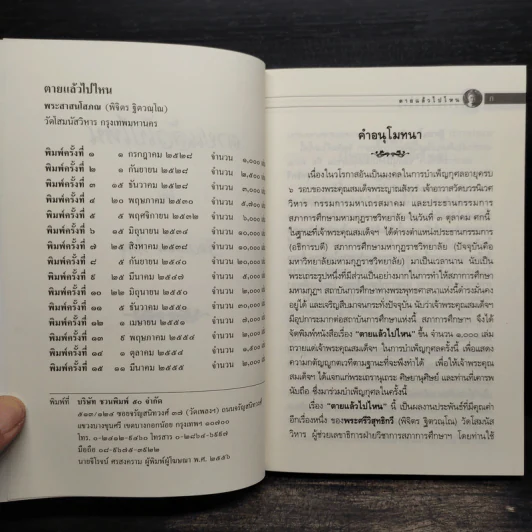 ตายแล้วไปไหน
พระสาสนโสภณ (พิจิตร ฐิตวณฺโณ)
วัดโสมนัสวิหาร กรุงเทพมหานคร
พิมพ์ครั้งที่ ๑ ๑ กรกฎาคม ๒๕๒๘ จำนวน ๑,๐๐๐ เล่ม
พิมพ์ครั้งที่ ๒ ๑ กันยายน ๒๕๒๘ จำนวน
พิมพ์ครั้งที่ ๓ ๑๕ ธันวาคม ๒๕๒๘ จำนวน
พิมพ์ครั้งที่ ๔ ๒๐ พฤษภาคม ๒๕๓๐ จำนวน
พิมพ์ครั้งที่ ๕ ๕ พฤศจิกายน ๒๕๓๒ จำนวน
พิมพ์ครั้งที่ ๖ ๑๕ มิถุนายน ๒๕๓๔ จำนวน
พิมพ์ครั้งที่ ๗ ๒๕ สิงหาคม ๒๕๓๘ จำนวน
พิมพ์ครั้งที่ ๘ ๕ กันยายน จำนวน
พิมพ์ครั้งที่ ๙ ๒๕ มีนาคม ๒๕๔๗ จำนวน
พิมพ์ครั้งที่ ๑๐ ๒๒ มิถุนายน จำนวน
พิมพ์ครั้งที่ ๑๑ ๕ ธันวาคม จำนวน
พิมพ์ครั้งที่ ๑๒ ๑ เมษายน จำนวน
พิมพ์ครั้งที่ ๑๓ ๙ พฤษภาคม จำนวน
พิมพ์ครั้งที่ ๑๔ ๑ ตุลาคม จำนวน
พิมพ์ครั้งที่ ๑๕ ๑๑ มีนาคม จำนวน
พิมพ์ที่ บริษัท ชวนพิมพ์ ๕๐ จำกัด
ซอยจรัญสนิทวงศ์ ๓๗ (วัดเพลงฯ) ถนนจรัญสนิทวงศ์
แขวงบางขุนศรี เขตบางกอกน้อย กรุงเทพฯ ๑๐๗๐๐
โทร. โทรสาร
มือถือ
นายจิโรจน์ ศรสงคราม ผู้พิมพ์ผู้โฆษณา พ.ศ. ๒๕๕๖
ตายแล้วไปไหน
คำอนุโมทนา
เนื่องในวโรกาสอันเป็นมงคลในการบำเพ็ญกุศลอายุครบ
๖ รอบของพระคุณสมเด็จพระญาณสังวร เจ้าอาวาสวัดบวรนิเวศ
วิหาร กรรมการมหาเถรสมาคม และประธานกรรมการ
สภาการศึกษามหามกุฏราชวิทยาลัย ในวันที่ ๓ ตุลาคม ศกนี้
ในฐานะที่เจ้าพระคุณสมเด็จฯ ได้ดำรงตำแหน่งประธานกรรมการ
(อธิการบดี) สภาการศึกษามหามกุฏราชวิทยาลัย (ปัจจุบันคือ
มหาวิทยาลัยมหามกุฏราชวิทยาลัย) มาเป็นเวลานาน นับเป็น
พระเถระรูปหนึ่งที่มีส่วนเป็นอย่างมากในการทำให้สภาการศึกษา
มหามกุฏฯ สถาบันการศึกษาทางพระพุทธศาสนาแห่งนี้ดำรงมั่นคง
อยู่ได้ และเจริญสืบมาจนกระทั่งปัจจุบัน นับว่าเจ้าพระคุณสมเด็จฯ
มีอุปการะมากต่อสถาบันการศึกษาแห่งนี้ สภาการศึกษาฯ จึงได้
จัดพิมพ์หนังสือเรื่อง "ตายแล้วไปไหน" ขึ้น จำนวน ๑,๐๐๐ เล่ม
ถวายแด่เจ้าพระคุณสมเด็จฯ ในการบำเพ็ญกุศลครั้งนี้ เพื่อแสดง
ความกตัญญูกตเวทีตามฐานะที่จะพึงทำได้ เพื่อให้เจ้าพระคุณ
สมเด็จฯ ได้แจกแก่พระเถรานุเถระ ศิษยานุศิษย์ และท่านที่เคารพ
นับถือ ซึ่งมาร่วมบำเพ็ญกุศลในครั้งนี้
เรื่อง "ตายแล้วไปไหน" นี้ เป็นผลงานประพันธ์ที่มีคุณค่า
อีกเรื่องหนึ่ง ของพระศรีวิสุทธิกวี (พิจิตร ฐิตวณฺโณ) วัดโสมนัส
วิหาร ผู้ช่วยเลขาธิการฝ่ายวิชาการสภาการศึกษาฯ โดยท่านใช้